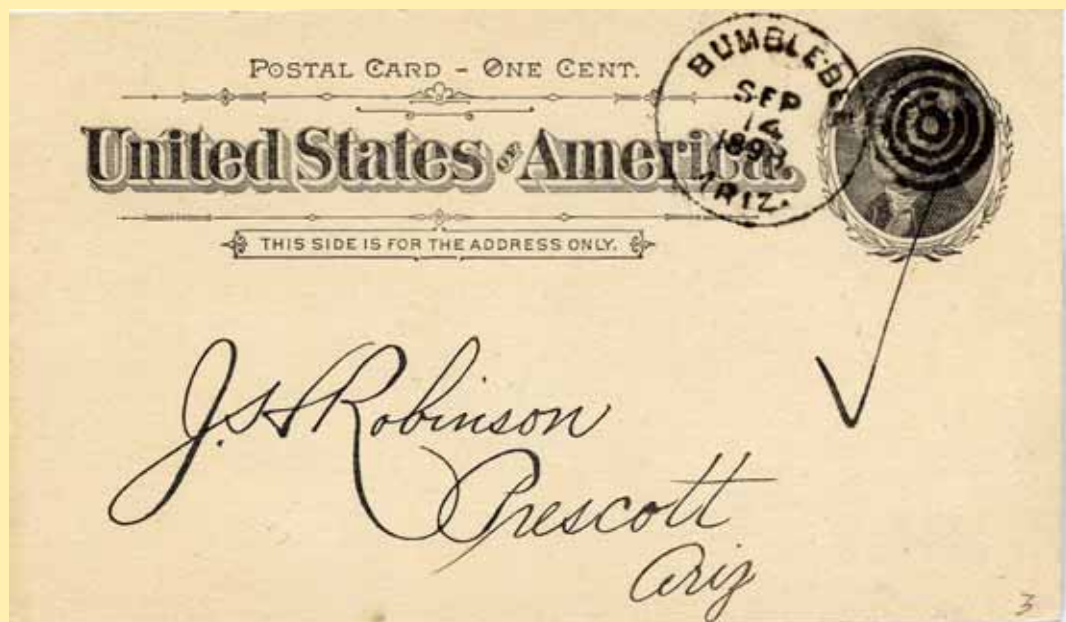 POSTAL CARD - ONE CENT.
United States OF America.
THIS SIDE IS FOR THE ADDRESS ONLY.
BUMBLE-BEE
SEP
14
ARIZ.
Robinson
Prescott
Ariz
3